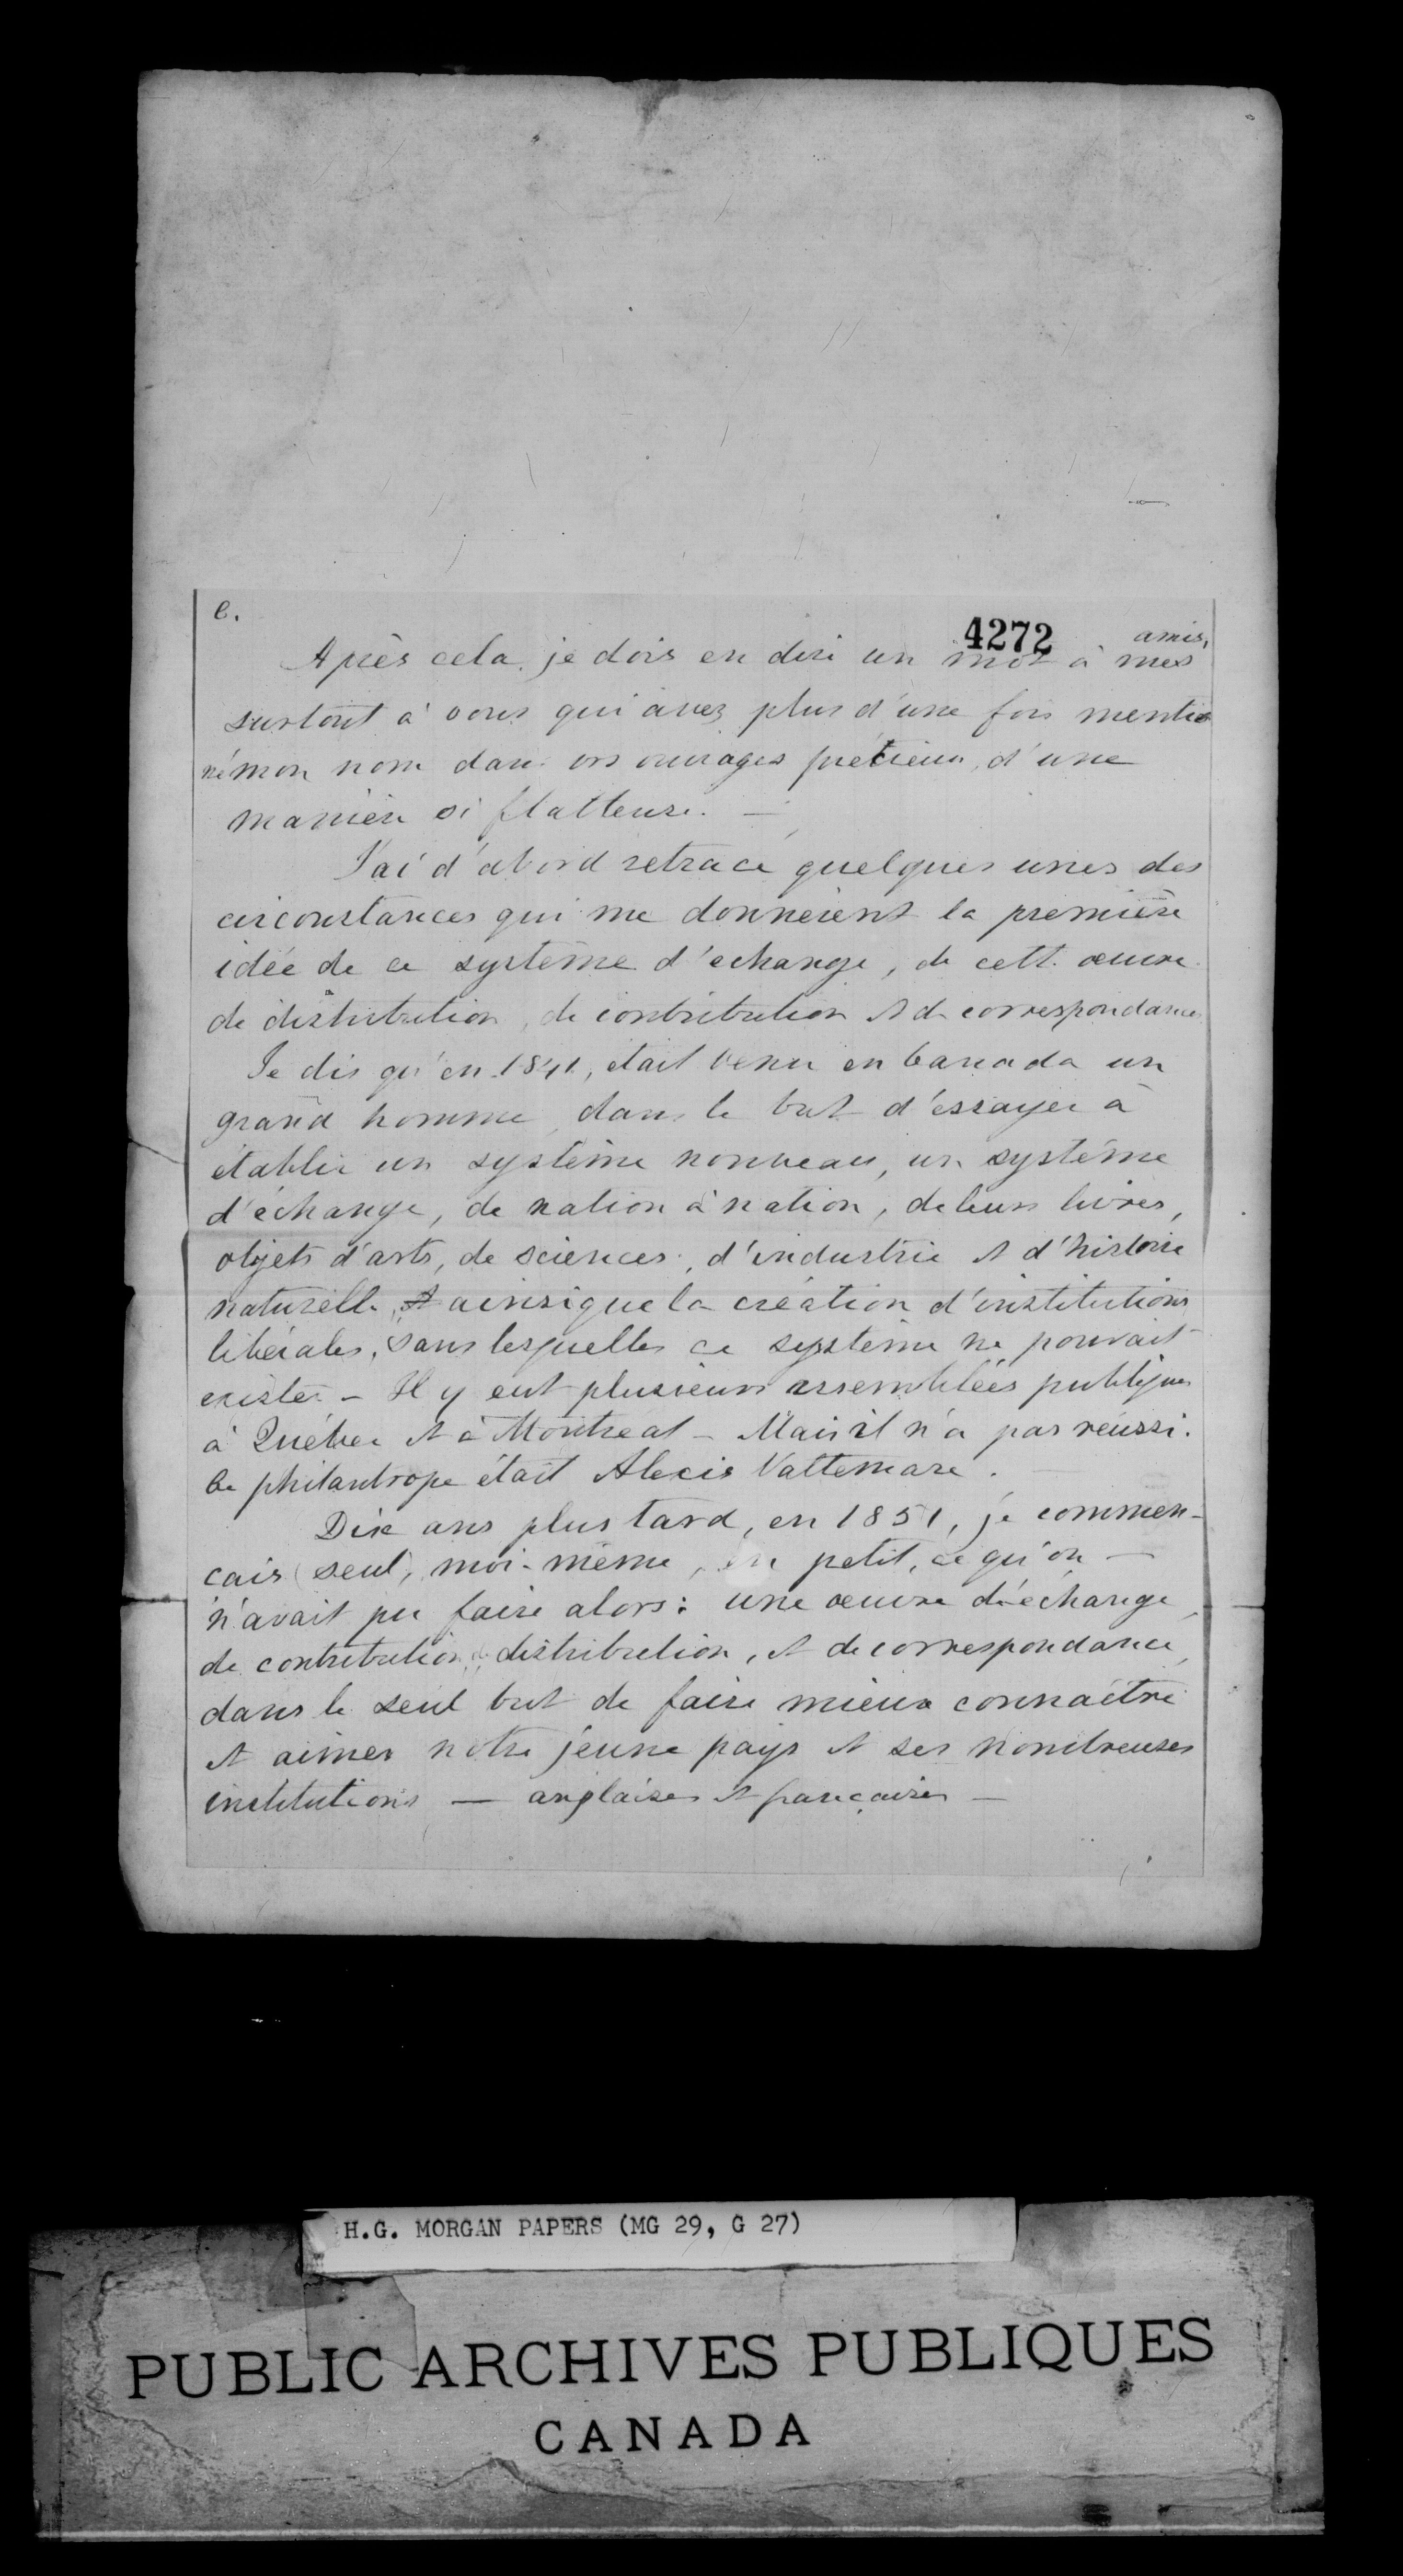 C.
4272
Après cela, je dois en dire un mot à mes amis,
surtout à vous qui avez plus d'une fois mentio
né mon nom dans vos ouvrages précieux, d'une
manière si flatteuse. —
J'ai d'abord retracé quelques unes des
circonstances qui me donnèrent la première
idée de ce système d'echange, de cette œuvre
de distribution, de contribution et de correspondance
Je dis qu'en 1841, était venu en Canada un
grand homme, dans le but d'essayer à
établir un système nouveau, un système
d'échange, de nation à nation, de leurs livres,
objets d'arts, de sciences, d'industrie et d'histoire
naturelle, et ainsi que la création d'institutions
libérales, sans lesquelles ce système ne pouvait
exister — Il y eut plusieurs assemblées publiques
à Québec et à Montréal — Mais il n'a pas réussi.
Ce philantrope était Alexis Vattemare.
Dix ans plus tard, en 1851, je commen-
cais (seul), moi-même, en petit, ce qu'on —
n'avait pu faire alors : une œuvre d'échange,
de contribution, de distribution, et de correspondance,
dans le seul but de faire mieux connaître
et aimer notre jeune pays et ses nombreuses
institutions — anglaises et françaises —
H.G. MORGAN PAPERS (MG 29, G 27)
PUBLIC ARCHIVES PUBLIQUES
CANADA